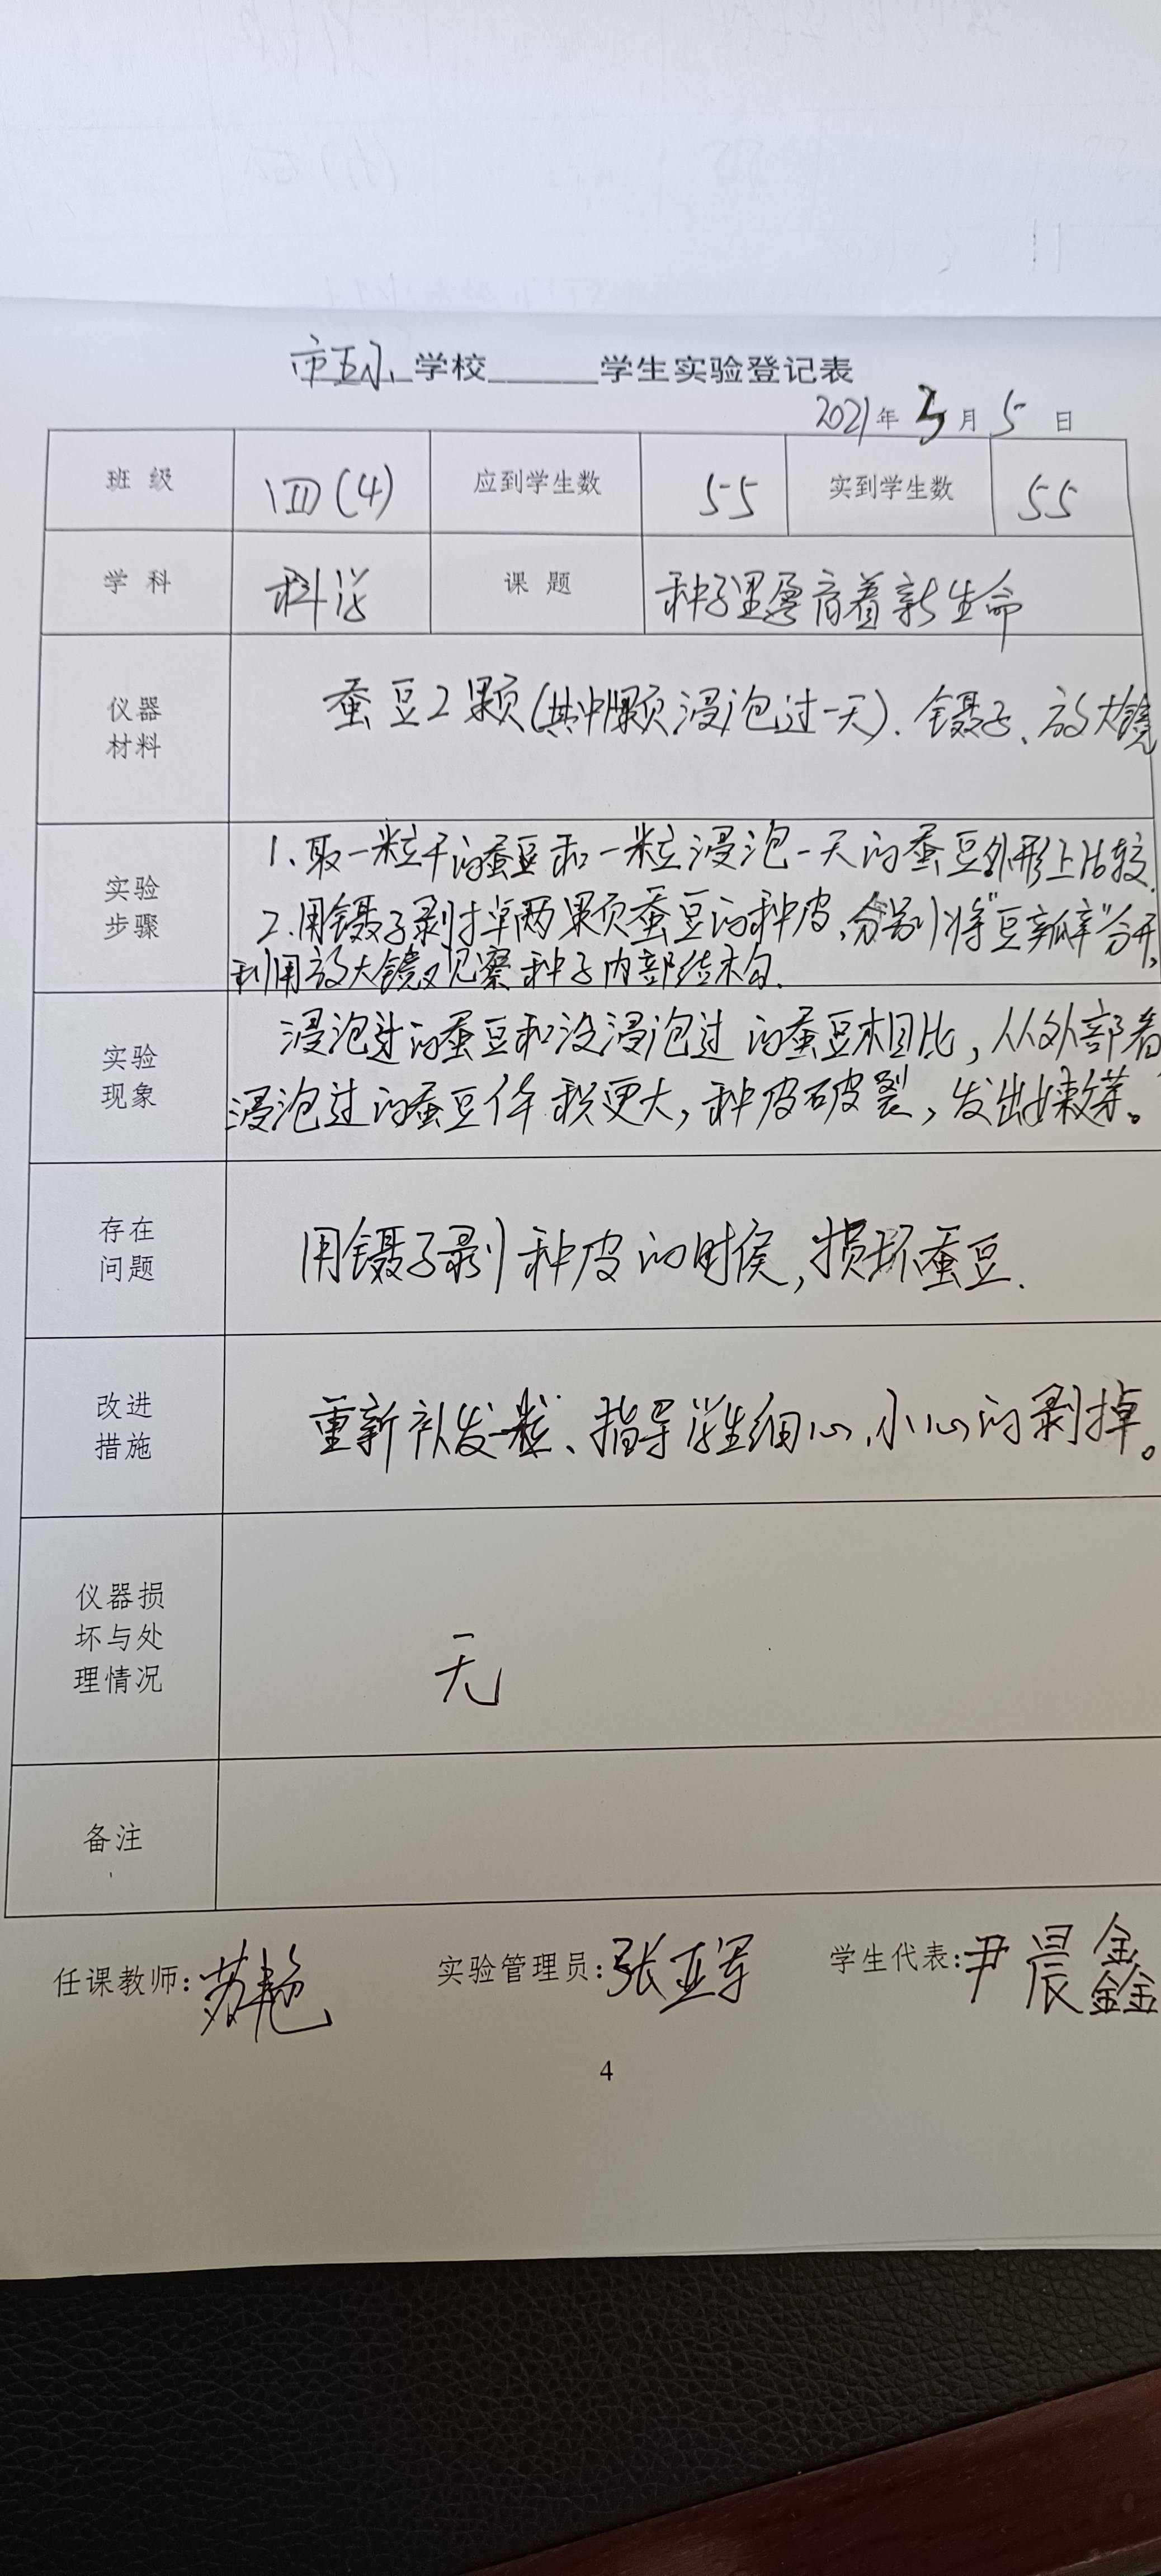 市五小学校______学生实验登记表
2021年3月5日
班级 四(4) 应到学生数 55 实到学生数 55
学科 科学 课题 种子里孕育着新生命
仪器
材料
蚕豆2颗(其中1颗浸泡过一天)、镊子、放大镜
实验
步骤
1、取一粒干的蚕豆和一粒浸泡一天的蚕豆外形上比较.
2.用镊子剥掉两颗蚕豆的种皮,分别将"豆瓣"分开,
利用放大镜观察种子内部结构.
实验
现象
浸泡过的蚕豆和没浸泡过的蚕豆相比,从外部看
浸泡过的蚕豆体积更大,种皮破裂,发出嫩芽。
存在
问题
用镊子剥种皮的时侯,损坏蚕豆.
改进
措施
重新补发一粒、指导学生细心,小心的剥掉。
仪器损
坏与处
理情况
无
备注
任课教师:苏艳 实验管理员:张亚军 学生代表:尹晨鑫
4